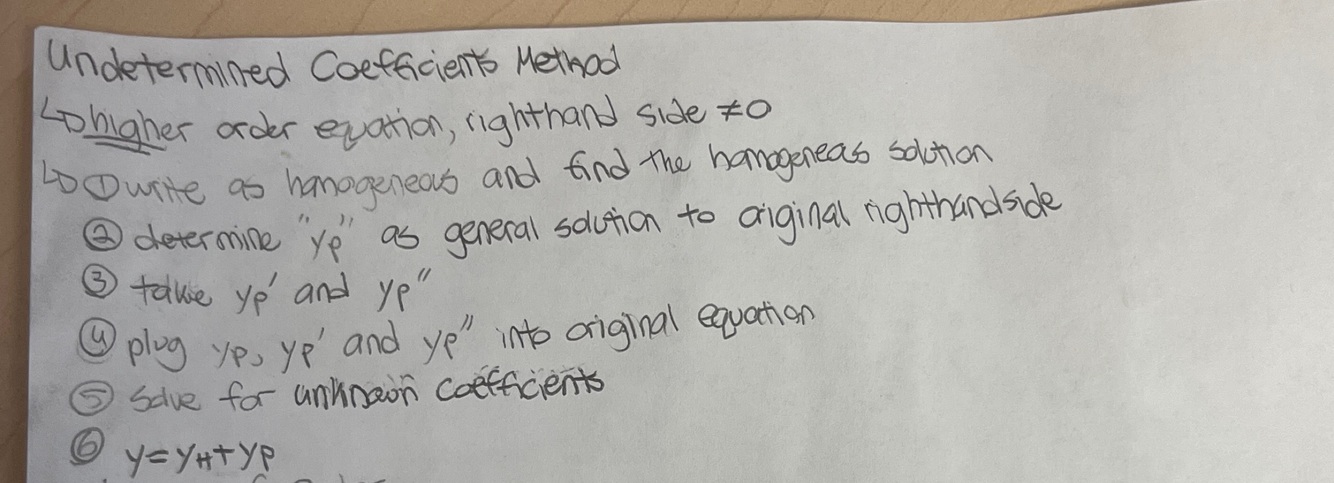 Undetermined Coefficients Method
↳ higher order equation, righthand side ≠0
↳ ① write as homogeneous and find the homogeneous solution
② determine "yp" as general solution to original righthandside
③ take yp' and yp"
④ plug yp, yp' and yp" into original equation
⑤ solve for unknown coefficients
⑥ y=yH+yp